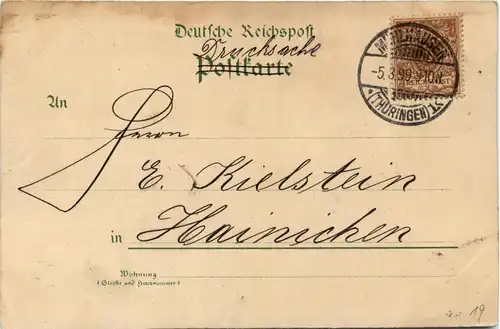 Deutsche Reichspost
Drucksache
Postkarte
MÜHLHAUSEN
-5.3.99.9-10N.
*(THÜRINGEN)1c
An
Herrn
E. Kielstein
in Hainichen
Wohnung
(Straße und Hausnummer)
19